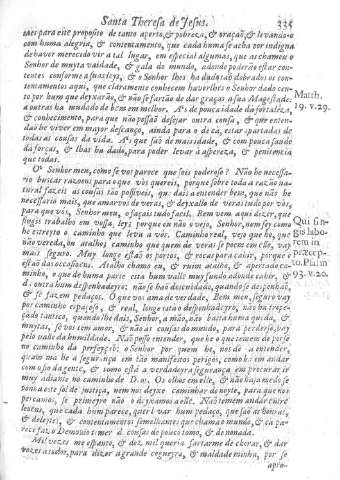 Santa Theresa de Jesus. 335
tães para este proposito de tanto aperto, & pobreza, & oração, & levando-o
com huma alegria, & contentamento, que cada huma se acha por indigna
de haver merecido vir a tal lugar, em especial algumas, que as chamou o
Senhor de muyta vaidade, & gala do mundo, adonde poderão estar con-
tentes conforme a suas leys, & o Senhor lhes ha dado tão dobrados os con-
tentamentos aqui, que claramente conhecem haverlhes o Senhor dado cen-
to por hum que deyxàrão, & não se fartão de dar graças a sua Magestade:
a outras ha mudado de bem em melhor. A's de pouca idade dà fortaleza,
& conhecimento, para que não possão desejar outra cousa, & que enten-
dão he viver em mayor descanço, ainda para o de cà, estar apartadas de
todas as cousas da vida. A's que são de mais idade, & com pouca saude
dà forças, & lhas ha dado, para poder levar a aspereza, & penitencia
que todas.
Matth.
19. v. 29.
O' Senhor meu, como se vos parece que sois poderoso! Não he necessa-
rio buscar razoens para o que vòs quereis, porque sobre toda a razão na-
tural fazeis as cousas tão possiveis, que dais a entender bem, que não he
necessario mais, que amarvos de veras, & deyxallo de veras tudo por vòs,
para que vòs, Senhor meu, o façais tudo facil. Bem vem aqui dizer, que
fingis trabalho em vossa ley; porque eu não o vejo, Senhor, nem sey como
he estreyto o caminho que leva a vòs. Caminho real, vejo que he, que
não vereda, ou atalho; caminho que quem de veras se poem em elle, vay
mais seguro. Muy longe estão os portos, & rocas para cahir, porque o
estão das occasioens. Atalho chamo eu, & ruim atalho, & apertado ca-
minho, o que de huma parte està hum valle muy fundo adonde cahir, &
de outra hum despenhadeyro: não se hão descuidado, quando se despenhão,
& se fazem pedaços. O que vos ama de verdade, Bem meu, seguro vay
por caminho espaçoso, & real, longe està o despenhadeyro, não ha trope-
çado tantico, quando lhe dais, Senhor, a mão, não basta huma queda, &
muytas, se vos tem amor, & não às cousas do mundo, para perderse, vay
pelo valle da humildade. Não posso entender, que he o que temem de porse
no caminho da perfeyção: o Senhor por quem he, nos dè a entender,
quam mà he a segurança em tão manifestos perigos, como ha em andar
com o fio da gente, & como està a verdadeyra segurança em procurar ir
muy adiante no caminho de Deos. Os olhos em elle, & não haja medo se
ponha este sol de justiça, nem nos deyxe caminhar de noyte, para que nos
percamos, se primeyro não o deyxamos a elle. Não temem andar entre
leoens, que cada hum parece, quer levar hum pedaço, que são as honras,
& deleytes, & contentamentos semelhantes que chama o mundo, & cà pa-
rece faz, o Demonio temer de cousas de pouco tomo, & de nonada.
Qui fin-
gis labo-
rem in
præcep-
to. Psalm.
93. v. 20.
Mil vezes me espanto, & dez mil queria fartarme de chorar, & dar
vozes a todos, para dizer a grande cegueyra, & maldade minha, por se
apro-